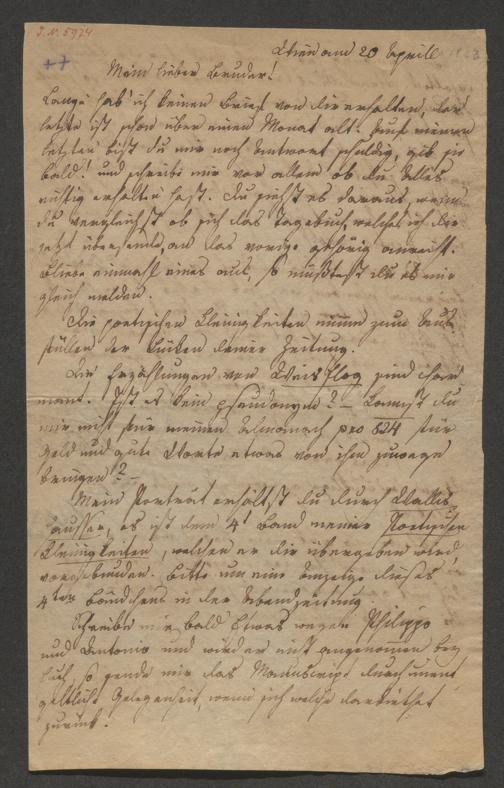 I. N. 5974
Wien am 20 April 1823
++
Mein lieber Bruder!
Lange hab' ich keinen Brief von dir erhalten, der
letzte ist schon über einen Monat alt. Auf meinen
letzten bist du mir noch Antwort schuldig, gib sie
bald! und schreibe mir vor allem ob du Alles
richtig erhalten hast. Du siehst es daraus, wenn
du vergleichst ob sich das Tagebuch, welches ich dir
jetzt übersende, an das vorige gehörig anreiht.
Bliebe einmahl eines aus, so müßtest du es mir
gleich melden.
Die poetischen Kleinigkeiten nimm zum Aus
füllen der Lücken deiner Zeitung.
Die Erzählungen von Weisflog sind char
mant. Ist es kein pseudonymer? – Kannst du
mir nicht für meinen Almanach pro 824 für
Geld und gute Worte etwas von ihm zuwege
bringen? –
Mein Porträt erhältst du durch Wallis
hausser, es ist dem 4t Band meiner Poetischen
Kleinigkeiten, welchen er dir übergeben wird,
vorgebunden. Bitte um eine Anzeige dieses
4ten Bändchens in der Abendzeitung
Schreibe mir bald Etwas wegen Philippo
und Antonio und würde er nicht angenomen bey
Euch, so sende mir das Manuscript durch unent
geltliche Gelegenheit, wenn sich welche darbiethet
zurück.